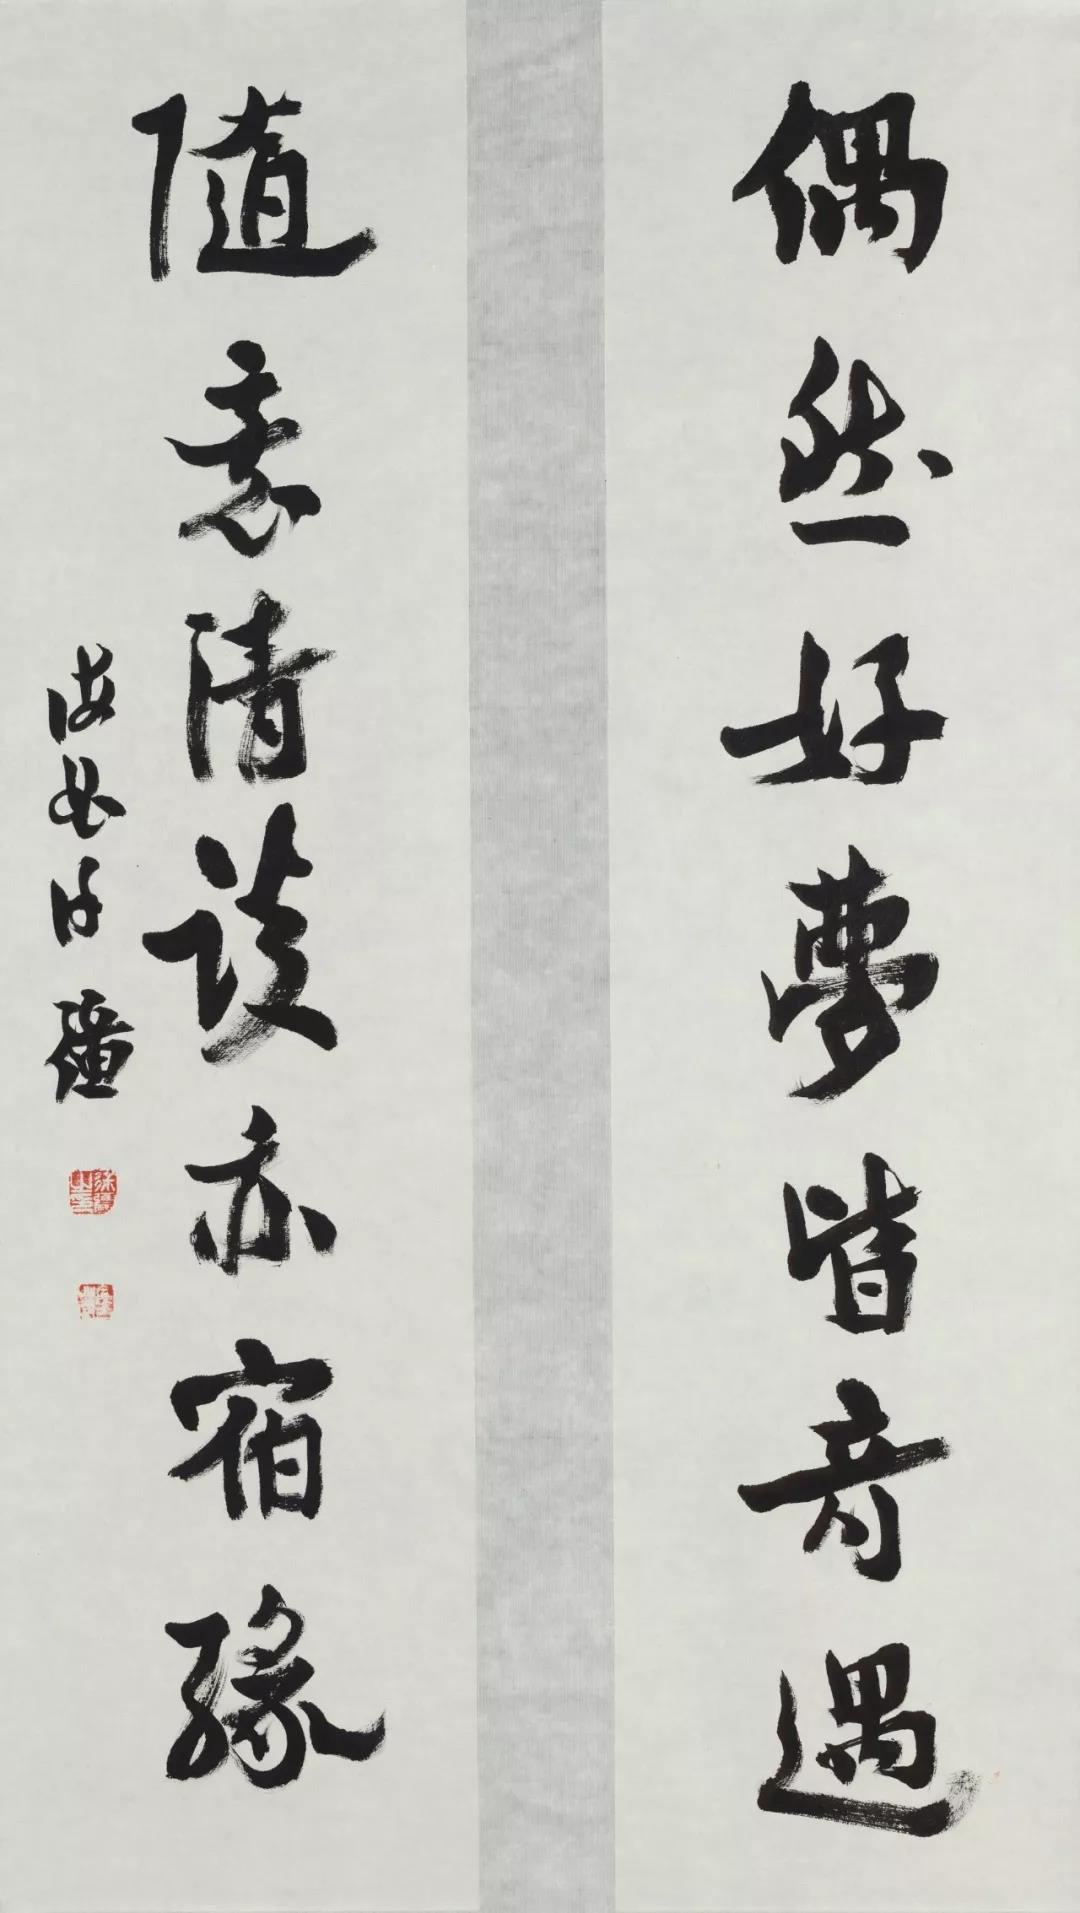 偶然好夢皆奇遇
隨意清談亦宿緣
海安徐疆